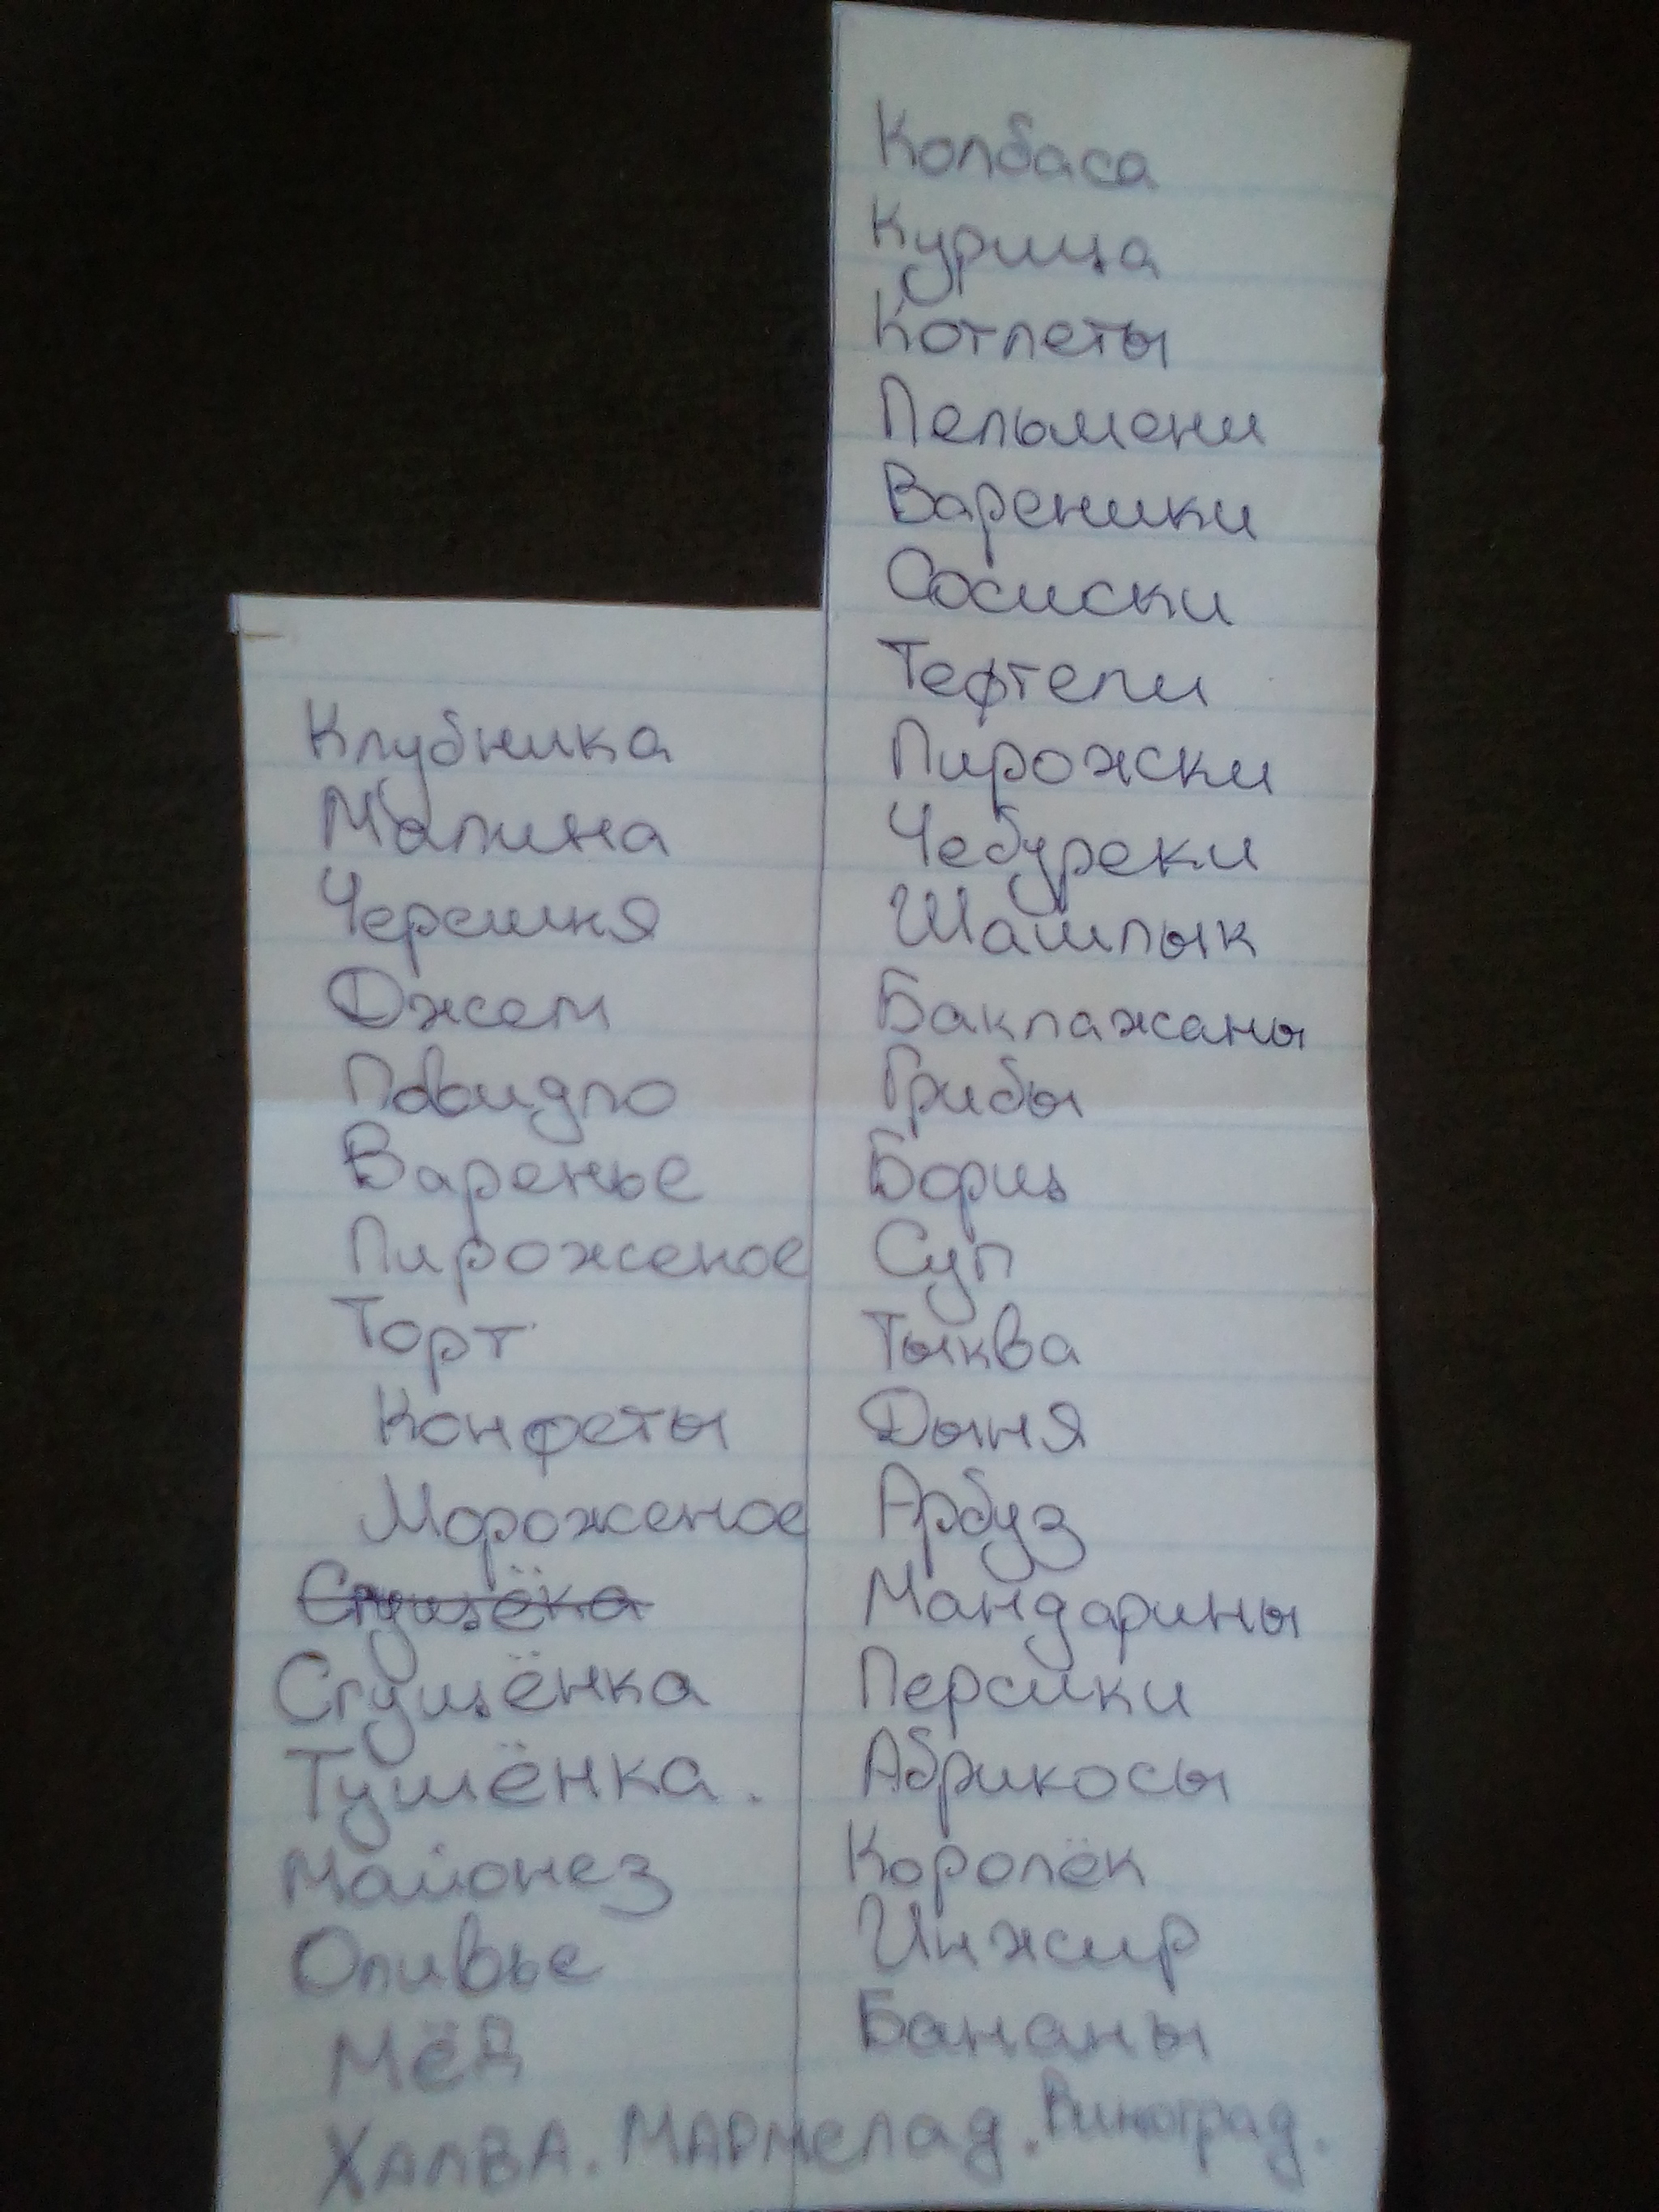 Клубника
Малина
Черешня
Джем
Повидло
Варенье
Пироженое
Торт
Конфеты
Мороженое
Сгущёка
Сгущёнка
Тушёнка.
Майонез
Оливье
Мёд
Колбаса
Курица
Котлеты
Пельмени
Вареники
Сосиски
Тефтели
Пирожски
Чебуреки
Шашлык
Баклажаны
Грибы
Борщ
Суп
Тыква
Дыня
Арбуз
Мандарины
Персики
Абрикосы
Королёк
Инжир
Бананы
ХАЛВА. МАРМелад. Виноград.